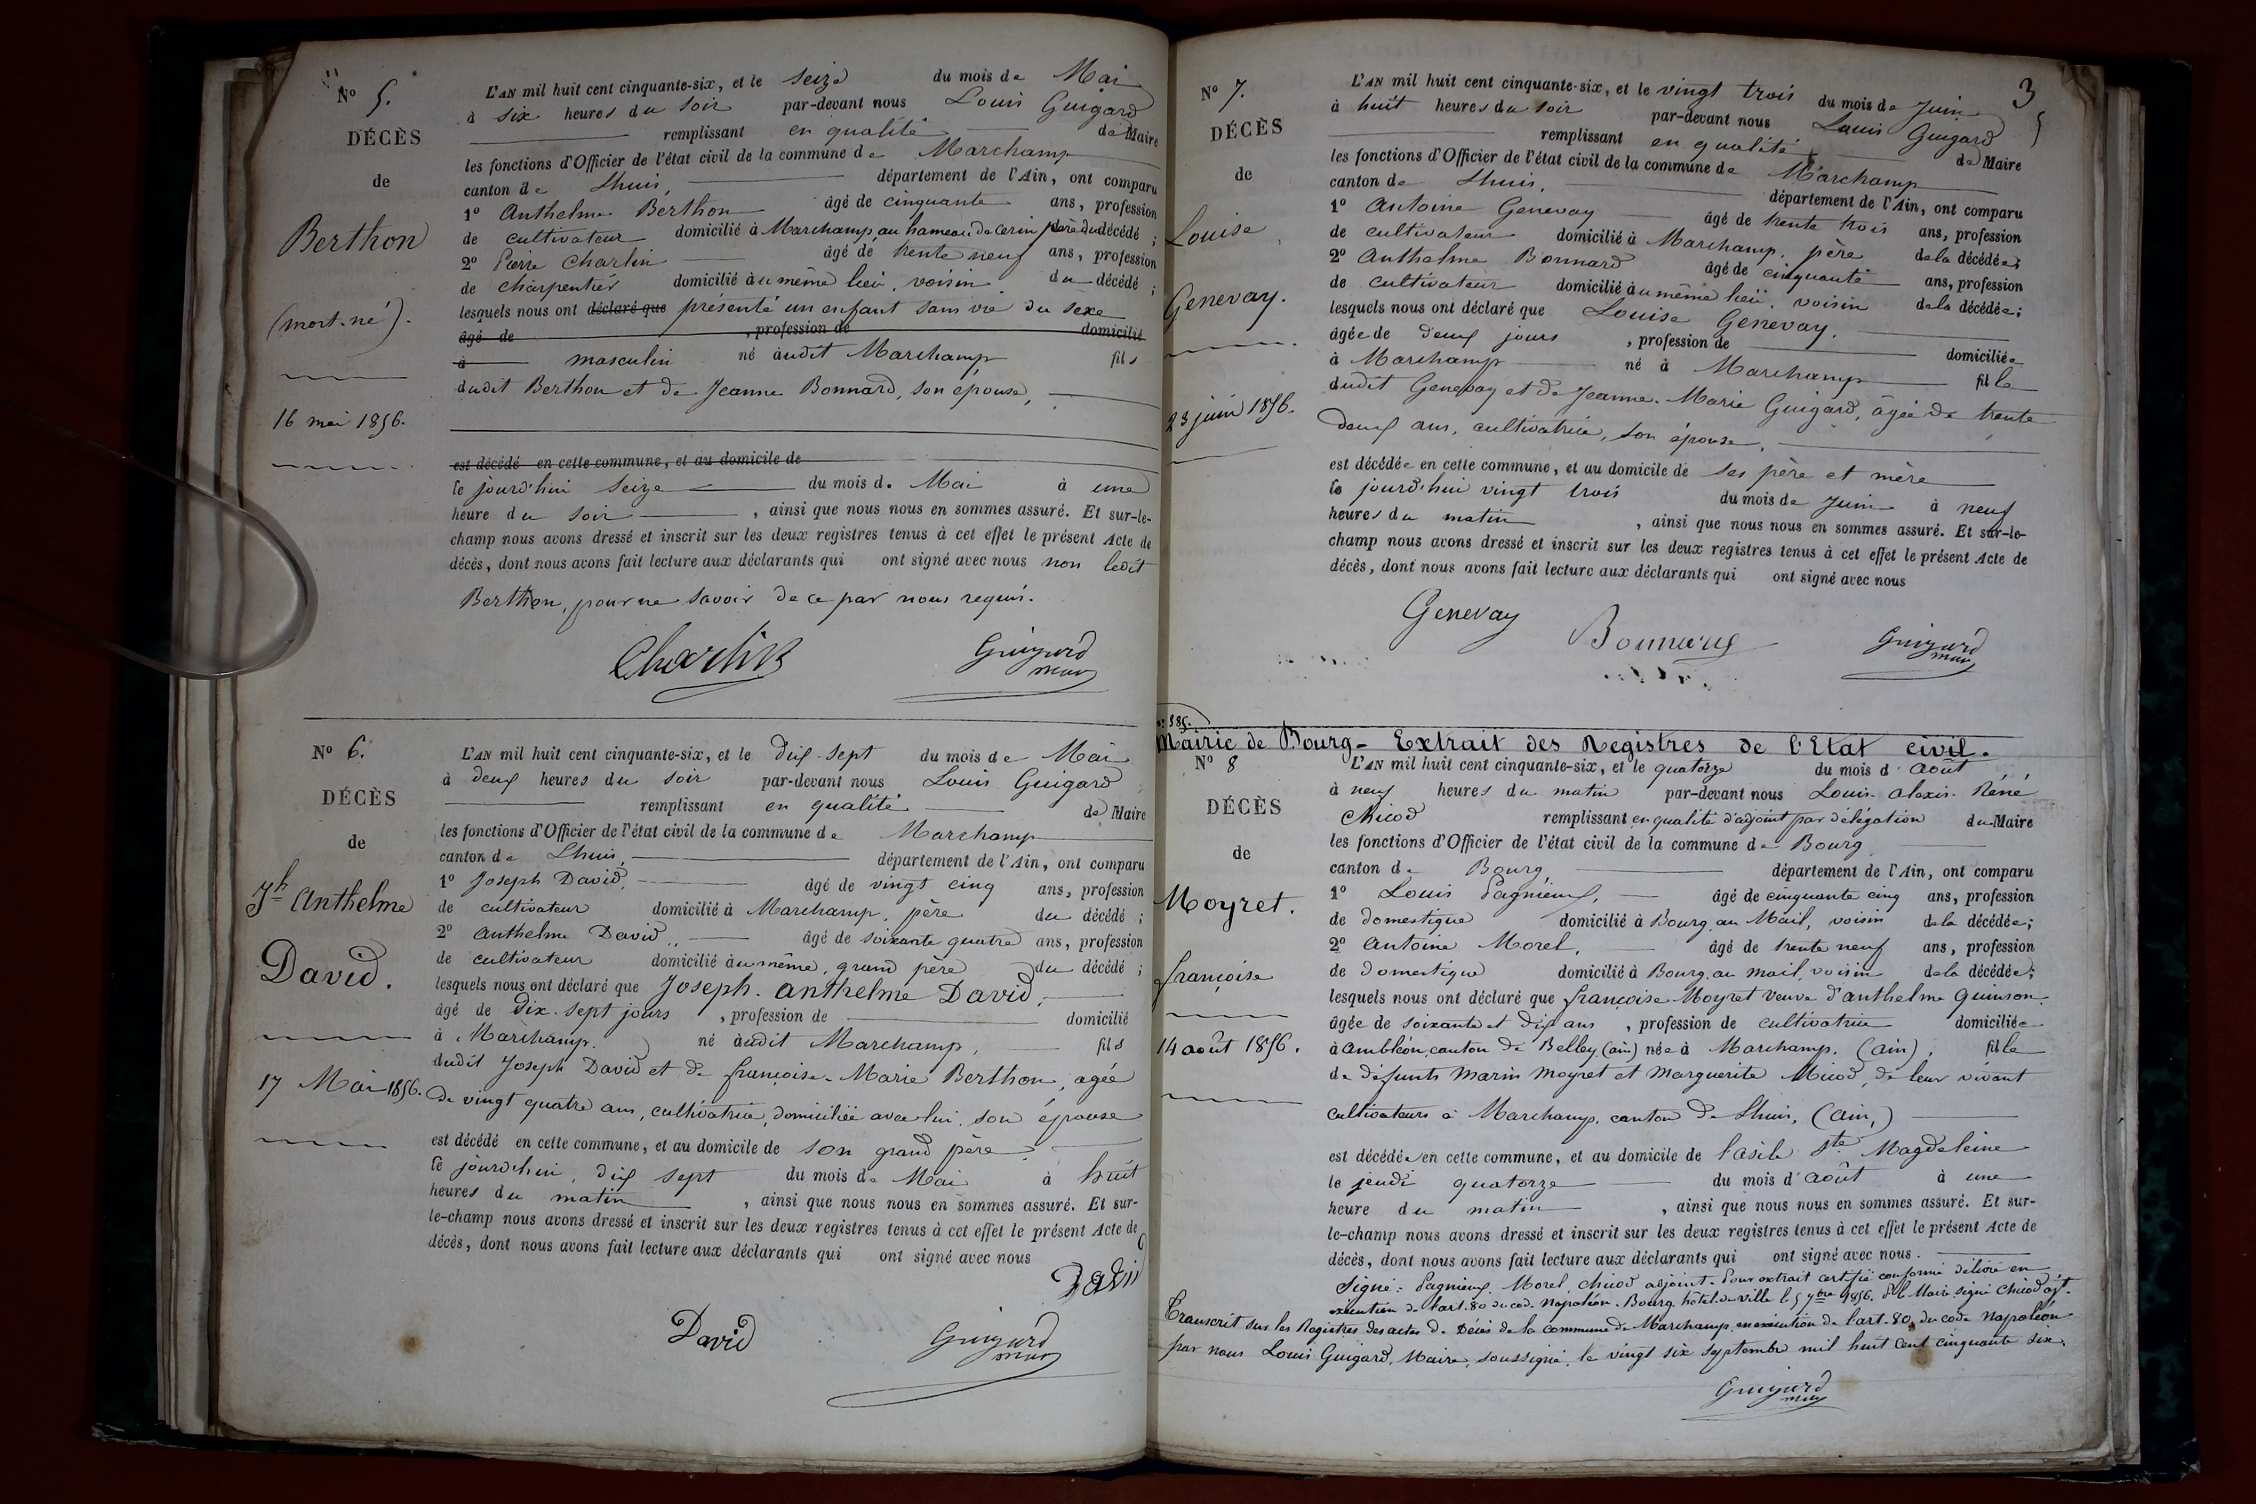 N° 5.
DÉCÈS
de
Berthon
(mort-né).
16 mai 1856.
L'AN mil huit cent cinquante-six, et le seize du mois de Mai
à six heures du soir par-devant nous Louis Guigard
remplissant en qualité de Maire
les fonctions d'Officier de l'état civil de la commune de Marchamp
canton de Lhuis, département de l'Ain, ont comparu
1° Anthelme Berthon âgé de cinquante ans, profession
de cultivateur domicilié à Marchamp, au hameau de Cerin père du décédé ;
2° Pierre Charlin âgé de trente neuf ans, profession
de charpentier domicilié au même lieu, voisin du décédé ;
lesquels nous ont déclaré que présenté un enfant sans vie du sexe
âgé de , profession de domicilié
à masculin né audit Marchamp fils
dudit Berthon et de Jeanne Bonnard, son épouse,
est décédé en cette commune, et au domicile de
le jourd'hui seize du mois de Mai à une
heure du soir , ainsi que nous nous en sommes assuré. Et sur-le-
champ nous avons dressé et inscrit sur les deux registres tenus à cet effet le présent Acte de
décès, dont nous avons fait lecture aux déclarants qui ont signé avec nous non ledit
Berthon, pour ne savoir de ce par nous requis.
Charlin Guigard
maire
N° 6.
DÉCÈS
de
Jh Anthelme
David.
17 Mai 1856.
L'AN mil huit cent cinquante-six, et le dix-sept du mois de Mai
à deux heures du soir par-devant nous Louis Guigard
remplissant en qualité de Maire
les fonctions d'Officier de l'état civil de la commune de Marchamp
canton de Lhuis, département de l'Ain, ont comparu
1° Joseph David, âgé de vingt cinq ans, profession
de cultivateur domicilié à Marchamp, père du décédé ;
2° Anthelme David, âgé de soixante quatre ans, profession
de cultivateur domicilié au même, grand père du décédé ;
lesquels nous ont déclaré que Joseph-Anthelme David,
âgé de dix-sept jours , profession de domicilié
à Marchamp. né audit Marchamp, fils
dudit Joseph David et de françoise-Marie Berthon, agée
de vingt quatre ans, cultivatrice, domiciliée avec lui, son épouse
est décédé en cette commune, et au domicile de son grand père.
le jourd'hui, dix sept du mois de Mai à huit
heures du matin , ainsi que nous nous en sommes assuré. Et sur-
le-champ nous avons dressé et inscrit sur les deux registres tenus à cet effet le présent Acte de
décès, dont nous avons fait lecture aux déclarants qui ont signé avec nous
David
David Guigard
maire
3
N° 7.
DÉCÈS
de
Louise
Genevay.
23 juin 1856.
L'AN mil huit cent cinquante-six, et le vingt trois du mois de Juin
à huit heures du soir par-devant nous Louis Guigard
remplissant en qualité de Maire
les fonctions d'Officier de l'état civil de la commune de Marchamp
canton de Lhuis, département de l'Ain, ont comparu
1° Antoine Genevay âgé de trente trois ans, profession
de cultivateur domicilié à Marchamp, père de la décédée ;
2° Anthelme Bonnard âgé de cinquante ans, profession
de cultivateur domicilié au même lieu, voisin de la décédée ;
lesquels nous ont déclaré que Louise Genevay,
âgée de deux jours , profession de domiciliée
à Marchamp né à Marchamp fille
dudit Genevay et de Jeanne-Marie Guigard, âgée de trente
deux ans, cultivatrice, son épouse,
est décédée en cette commune, et au domicile de ses père et mère
le jourd'hui vingt trois du mois de Juin à neuf
heures du matin , ainsi que nous nous en sommes assuré. Et sur-le-
champ nous avons dressé et inscrit sur les deux registres tenus à cet effet le présent Acte de
décès, dont nous avons fait lecture aux déclarants qui ont signé avec nous
Genevay Bonnard Guigard
maire
585.
Mairie de Bourg - Extrait des Registres de l'Etat civil.
N° 8
DÉCÈS
de
Moyret.
françoise
14 août 1856.
L'AN mil huit cent cinquante-six, et le quatorze du mois d'août
à neuf heures du matin par-devant nous Louis-Alexis-Réné
Chicod remplissant en qualité d'adjoint par délégation du Maire
les fonctions d'Officier de l'état civil de la commune de Bourg
canton de Bourg, département de l'Ain, ont comparu
1° Louis Pagnieux, âgé de cinquante cinq ans, profession
de domestique domicilié à Bourg au Mail, voisin de la décédée ;
2° Antoine Morel, âgé de trente neuf ans, profession
de domestique domicilié à Bourg, au mail, voisin de la décédée ;
lesquels nous ont déclaré que françoise Moyret veuve d'anthelme Quinson
âgée de soixante et dix ans , profession de cultivatrice domiciliée
à Ambléon, canton de Belley, (ain) née à Marchamp, (ain), fille
de défunts Marin Moyret et Marguerite Micod, de leur vivant
cultivateurs à Marchamp, canton de Lhuis, (ain,)
est décédée en cette commune, et au domicile de l'asile Ste Magdeleine
le jeudi quatorze du mois d'août à une
heure du matin , ainsi que nous nous en sommes assuré. Et sur-
le-champ nous avons dressé et inscrit sur les deux registres tenus à cet effet le présent Acte de
décès, dont nous avons fait lecture aux déclarants qui ont signé avec nous.
Signé : Pagnieux, Morel, Chicod adjoint. Pour extrait certifié conforme délivré en
exécution de l'art. 80 du cod. Napoléon. Bourg hôtel de ville le 5 7bre 1856. P. le Maire, signé Chicod ajt.
Transcrit sur les Registres des actes de Décès de la commune de Marchamp, en exécution de l'art. 80, du code Napoléon
par nous Louis Guigard, Maire, soussigné, le vingt six septembre mil huit cent cinquante six.
Guigard
maire